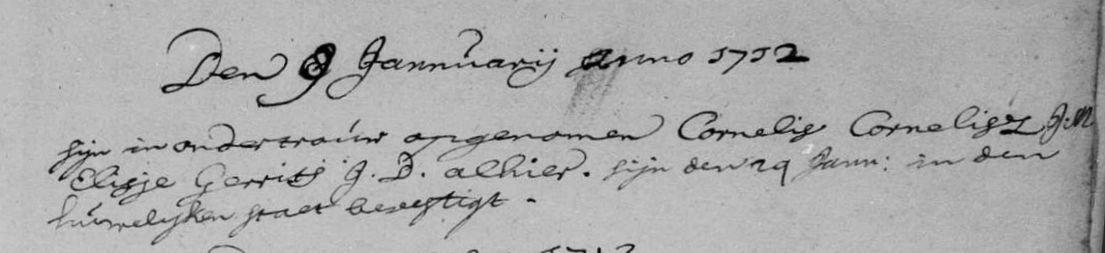 Den 9 Jannuarij anno 1712
sijn in ondertrouw opgenomen Cornelis Cornelisz J.M
Elisje Gerrits J. D. alhier. sijn den 29 Jann: in den
huwelijken staet bevestigt.